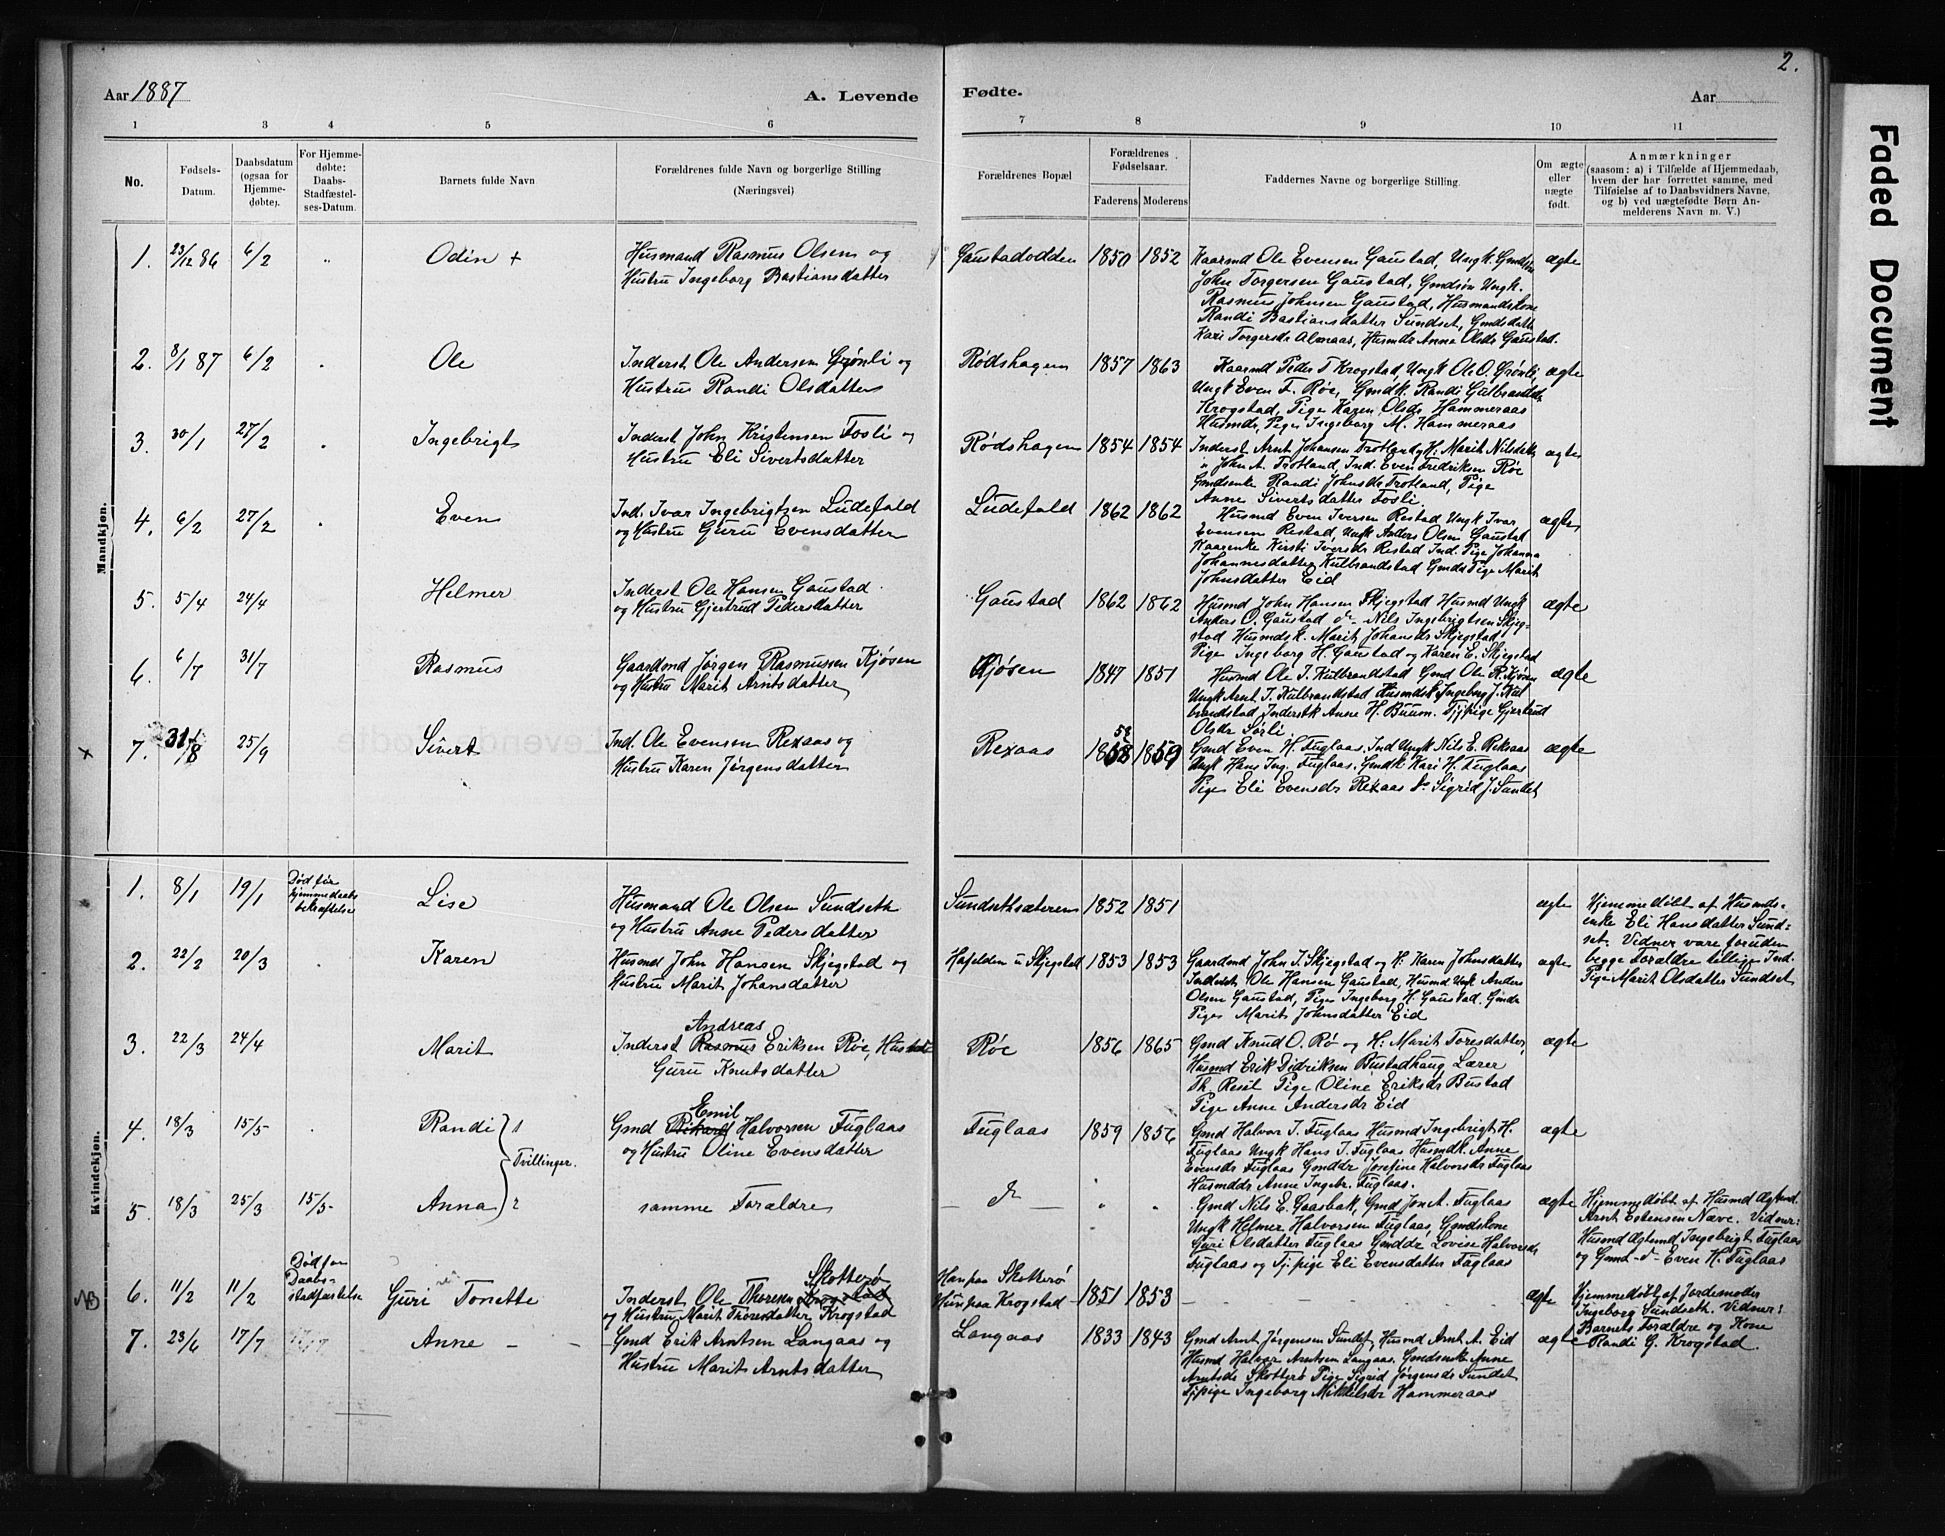 2.
Aar 1887
A. Levende
Fødte.
Aar
1 3 4 5 6 7 8 9 10 11
No.
Fødsels-Datum.
Daabsdatum (ogsaa for Hjemme-døbte).
For Hjemme-døbte: Daabs-Stadfæstel-ses-Datum.
Barnets fulde Navn
Forældrenes fulde Navn og borgerlige Stilling (Næringsvei)
Forældrenes Bopæl
Forældrenes Fødselsaar.
Faderens Moderens
Faddernes Navne og borgerlige Stilling.
Om ægte eller uægte født.
Anmærkninger
(saasom: a) i Tilfælde af Hjemmedaab,
hvem der har forrettet samme, med
Tilføielse af to Daabsvidners Navne,
og b) ved uægtefødte Børn An-
melderens Navn m. V.)
Mandkjøn.
1. 23/12 86 6/2 " Odin + Husmand Rasmus Olsen og Gaustadvolden 1850 1852 Kaarmd Ole Evensen Gaustad, Ungk. Gmdsøn ægte
Hustru Ingeborg Bastiansdatter John Torgersen Gaustad, Gmdsøn Ungk.
Rasmus Johnsen Gaustad, Husmandskone
Randi Bastiansdatter Sundset, Gmdsdatter
Kari Torgersdr Almaas, Husmdr Anne Olsdr Gaustad.
2. 8/1 87 6/2 Ole Inderst Ole Andersen Grønli og Rødshagen 1857 1863 Kaarmd Peder T Krogstad, Ungk Ole O. Grønli, ægte
Hustru Randi Olsdatter Ungk Even F. Røe, Gmdk. Randi
Krogstad, Pige Karen Olsdr Hammeraas
Husmdr, Pige Ingeborg M. Hammeraas
3. 30/1 27/2 Ingebrigt Inderst John Kristensen Fosli og Rødshagen 1854 1854 Inderst Arnt Johansen Trotland og H. Marit Nilsdtr ægte
Hustru Eli Sivertsdatter John A. Trotland, Ind. Even Fredriksen Røe
Gmdsenke Randi Johnsdr Trotland, Pige
Anne Sivertsdatter Fosli
4. 6/2 27/2 Even Ind. Ivar Ingebrigtsen Ludefald Ludefald 1862 1862 Husmd Even Iversen Restad Ungk Ivar ægte
og Hustru Guru Evensdatter Evensen Restad, Ungk Anders Olsen Gaustad
Kaarenke Kirsti Iversdr Restad Ind. Pige Johanna
Johannesdatter Kulbrandstad Gmdd Pige Marit
Johnsdatter Eid
5. 5/4 24/4 Helmer Inderst Ole Hansen Gaustad Gaustad 1862 1862 Husmd John Hansen Skjegstad Husmd Ungk ægte
og Hustru Gjertrud Pedersdatter Anders O. Gaustad do Nils Ingebrigtsen Skjeg-
stad Husmdsk. Marit Johansdr Skjegstad
Pige Ingeborg H. Gaustad og Karen E. Skjegstad
6. 6/7 31/7 Rasmus Gaardmd Jørgen Rasmussen Kjøsen Kjøsen 1847 1851 Husmd Ole I. Kulbrandstad Gmd Ole R. Kjøsen ægte
og Hustru Marit Arntsdatter Ungk Arnt I. Kulbrandstad Husmdsk Ingeborg J. Kul
brandstad Inderstk Anne H. Buum. Tjpige Gjertrud
Olsdr Sørli
+ 7. 31/8 25/9 Sivert Ind. Ole Evensen Rexaas og Rexaas 1858 58 1859 Gmd Even H. Fuglaas, Ind Ungk Nils E. Reksaas ægte
Hustru Karen Jørgensdatter Ungk Hans Ing. Fuglaas. Gmdk. Kari H. Fuglaas
Pige Eli Evensdr Rexaas do Sigrid J. Sundet
Kvindekjøn.
1. 8/1 19/1 Død før hjemmedaabs bekræftelse Lise Husmand Ole Olsen Sundseth Sundsethsæteren 1852 1851 ægte Hjemmedøbt af Husmds-
og Hustru Anne Pedersdatter enke Eli Hansdatter Sund-
set. Vidner vare foruden
2. 22/2 20/3 Karen Husmd John Hansen Skjegstad og Hafelden u Skjegstad 1853 1853 Gaardmd John I. Skjegstad og H. Karen Johnsdatter ægte begge Forældre tillige Ind.
Hustru Marit Johansdatter Inderst Ole Hansen Gaustad, Husmd Ungk Anders Pige Marit Olsdatter Sundset
Olsen Gaustad, Pige Ingeborg H. Gaustad. Gmdr
Pige Marit Johnsdatter Eid
3. 22/3 24/4 Marit Inderst Rasmus Andreas Eriksen Røe Hustru Røe 1856 1865 Gmd Knud O. Rø og H. Marit Toresdatter, ægte
Guru Knutsdatter Husmd Erik Didriksen Bustadhaug Lærer
Th. Resil Pige Oline Eriksdr Bustad
Pige Anne Andersdr Eid
4. 18/3 15/5 Randi 1 Tvillinger. Gmd Rikard Emil Halvorsen Fuglaas Fuglaas 1859 1856 Gmd Halvor I. Fuglaas Husmd Ingebrigt H. ægte
og Hustru Oline Evensdatter Fuglaas Ungk Hans I. Fuglaas Husmdk. Anne
Evensdr Fuglaas Gmddr Josefine Halvorsdr Fuglaas
Husmddr Anne Ingebr. Fuglaas.
5. 18/3 25/3 15/5 Anna 2 samme Forældre — do — " " Gmd Nils E. Gaasbak, Gmd Jon A. Fuglaas ægte Hjemmedøbt af Husmd Ægtmd.
Ungk Helmer Halvorsen Fuglaas, Gmdskone Arnt Estensen Næve. Vidner:
Guri Olsdatter Fuglaas Gmddr Lovise Halvorsdr Husmd Ægtmd Ingebrigt Fuglaas
Fuglaas og Tj. pige Eli Evensdatter Fuglaas og Gmd do Even H. Fuglaas
NB 6. 11/2 11/2 Død før Daabs-stadfæstelse Guri Tonette Inderst Ole Thoresen Krogstad Skotterø Han paa Skotterø 1851 1853 — — ægte Hjemmedøbt af Jordemoder
og Hustru Marit Thoresdatter Krogstad Hun paa Krogstad Ingeborg Sundseth. Vidner:
Barnets Forældre og Kone
7. 23/6 17/7 17/7 Anne — — Gmd Erik Arntsen Langaas og Langaas 1833 1843 Gmd Arnt Jørgensen Sundet, Husmd Arnt A. Eid ægte Randi G. Krogstad.
Hustru Marit Arntsdatter Husmd Halvor Arntsen Langaas. Gmdsenke Anne
Arntsdr Skotterø Pige Sigrid Jørgensdr Sundet
Tjpige Ingeborg Mikkelsdr Hammeraas
Faded Document